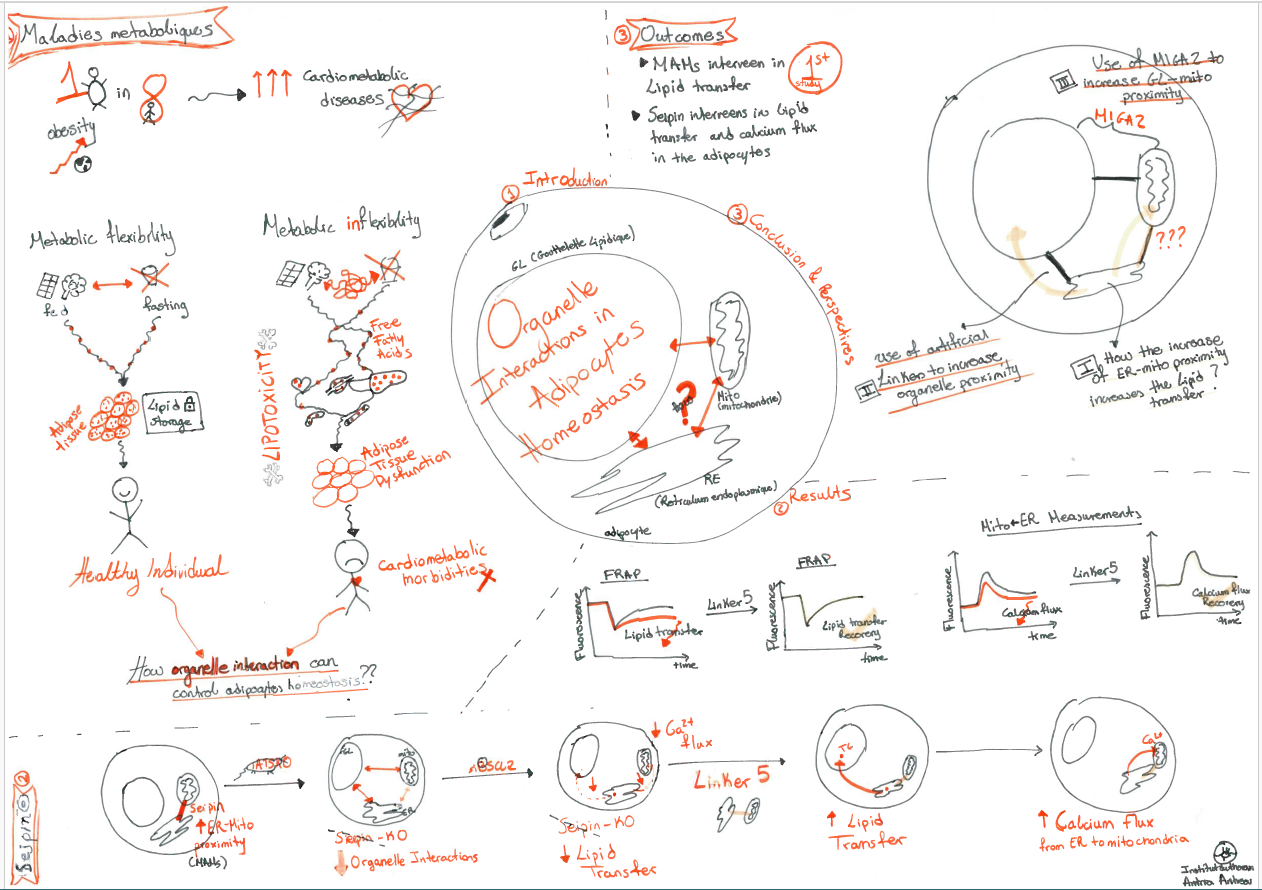 Maladies metaboliques
1 in 8
obesity
Cardiometabolic
diseases
Metabolic flexibility
fed
fasting
Adipose
tissue
Lipid
storage
Healthy Individual
Metabolic inflexibility
Free
Fatty
Acids
LIPOTOXICITY
Adipose
Tissue
Dysfunction
Cardiometabolic
morbidities
How organelle interaction can
control adipocytes homeostasis??
③ Outcomes
MAMs interveen in
Lipid transfer
1st
study
Seipin interreens in Lipid
transfer and calcium flux
in the adipocytes
① Introduction
GL (Gouttelette Lipidique)
Organelle
Interactions in
Adipocytes
Homeostasis
?
Mito
(mitochondrie)
RE
(Reticulum endoplasmique)
adipocyte
③ Conclusion & Perspectives
III Use of MIGA2 to
increase GL-mito
proximity
MIGA2
???
II use of artificial
Linker to increase
organelle proximity
I How the increase
of ER-mito proximity
increases the Lipid
transfer ?
② Results
FRAP
Fluorescence
Lipid transfer
time
Linker 5
FRAP
Fluorescence
Lipid transfer
Recovery
time
Mito+ER Measurements
Fluorescence
Calcium flux
time
Linker 5
Fluorescence
Calcium flux
Recovery
time
Seipin ②
Seipin
ER-Mito
proximity
(MAMs)
GL
mito
ER
Seipin-KO
Organelle Interactions
Seipin-KO
Lipid
Transfer
Ca2+
flux
Linker 5
TG
Lipid
Transfer
Ca2+
Calcium flux
from ER to mitochondria